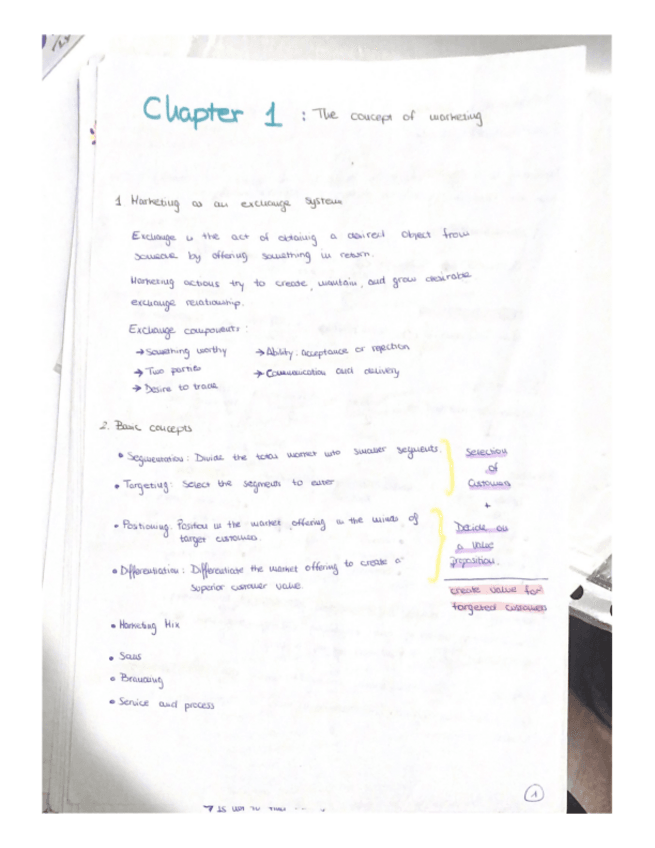 Chapter 1 : The concept of marketing
1 Marketing as an exchange system
Exchange is the act of obtaining a desired object from
someone by offering something in return.
Marketing actions try to create, maintain, and grow desirable
exchange relationship.
Exchange components :
→ Something worthy
→ Two parties
→ Desire to trade
→ Ability: acceptance or rejection
→ Communication and delivery
2. Basic concepts
• Segmentation : Divide the total market into smaller segments.
• Targeting : Select the segments to enter
Selection
of
Customers
+
• Positioning. Position in the market offering in the minds of
target customers.
• Differentiation : Differentiate the market offering to create a
superior customer value.
Decide on
a value
proposition.
create value for
targeted customers
• Marketing Mix
• Sales
• Branding
• Service and process
1